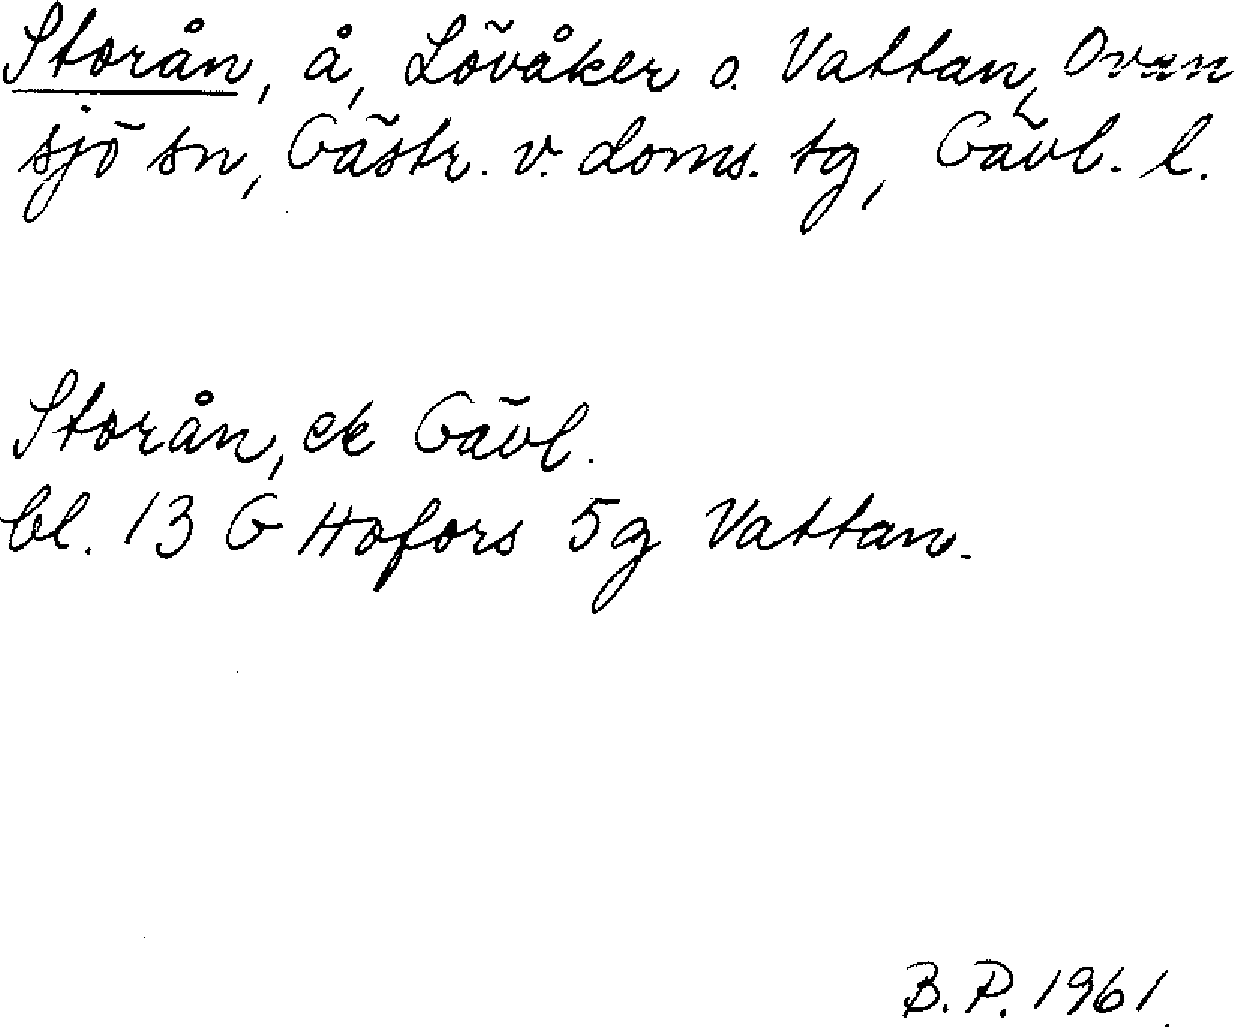 Storån, å, Lövåker o. Vattan, Ovan
sjö sn, Gästr. v. doms. tg, Gävl. l.
Storån, ek Gävl.
bl. 13 G Hofors 5g Vattan.
B. P. 1961.